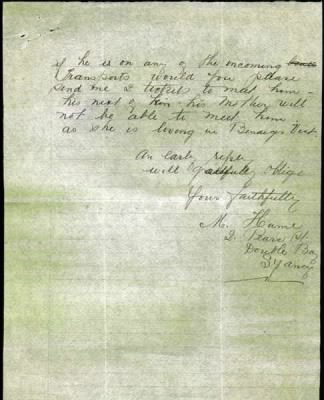 if he is on any of the incoming
Transports would you please
send me 2 tickets to meet him -
his next of Kin - his Mother will
not be able to meet him
as she is living in Bendigo Vict
An early reply
will oblige
Yours faithfully
M. Hume
2. Pearce St
Double Bay
Sydney